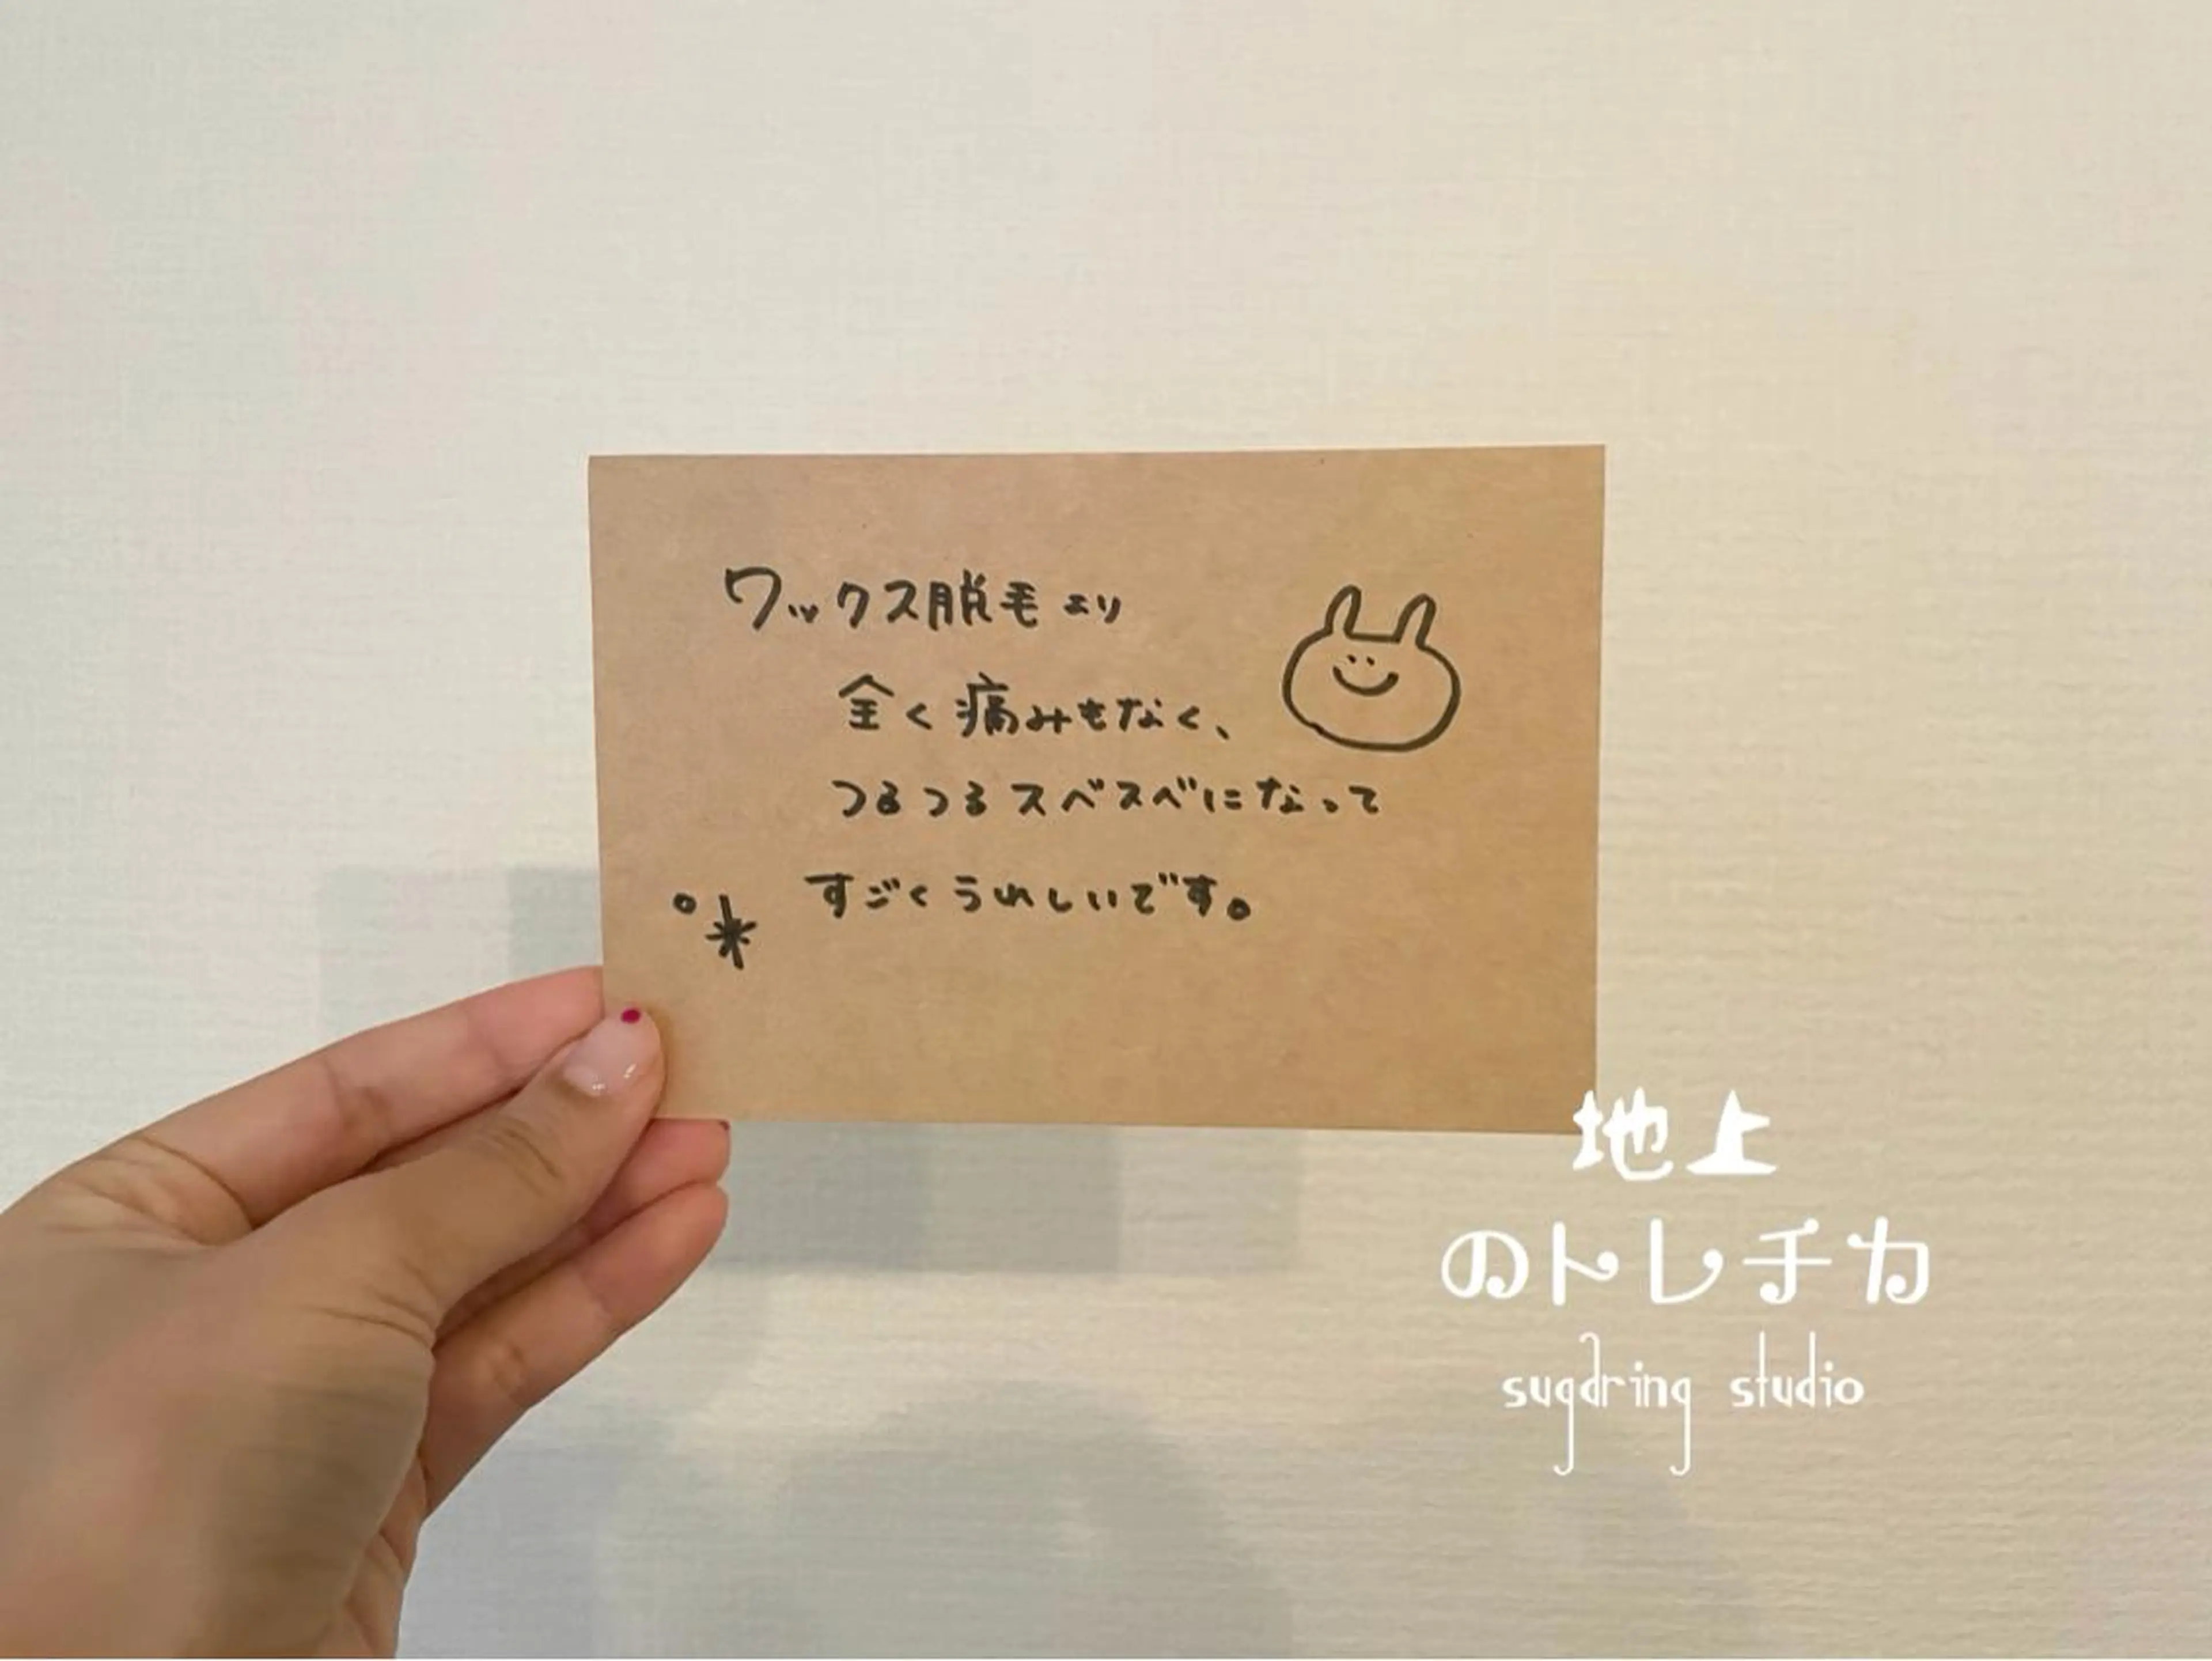 ワックス脱毛より
全く痛みもなく、
つるつるスベスベになって
すごくうれしいです。
地上
のトレチカ
sugaring studio